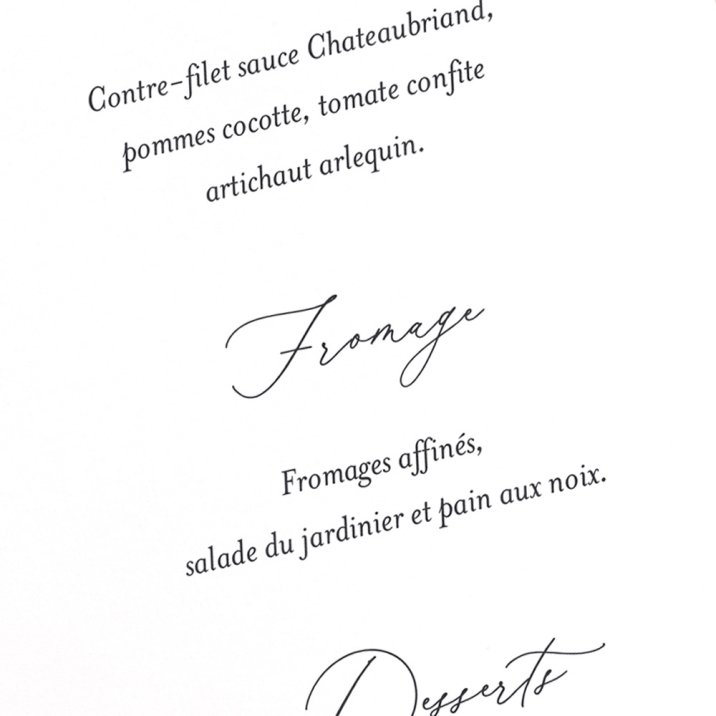 Contre-filet sauce Chateaubriand,
pommes cocotte, tomate confite
artichaut arlequin.
Fromage
Fromages affinés,
salade du jardinier et pain aux noix.
Desserts